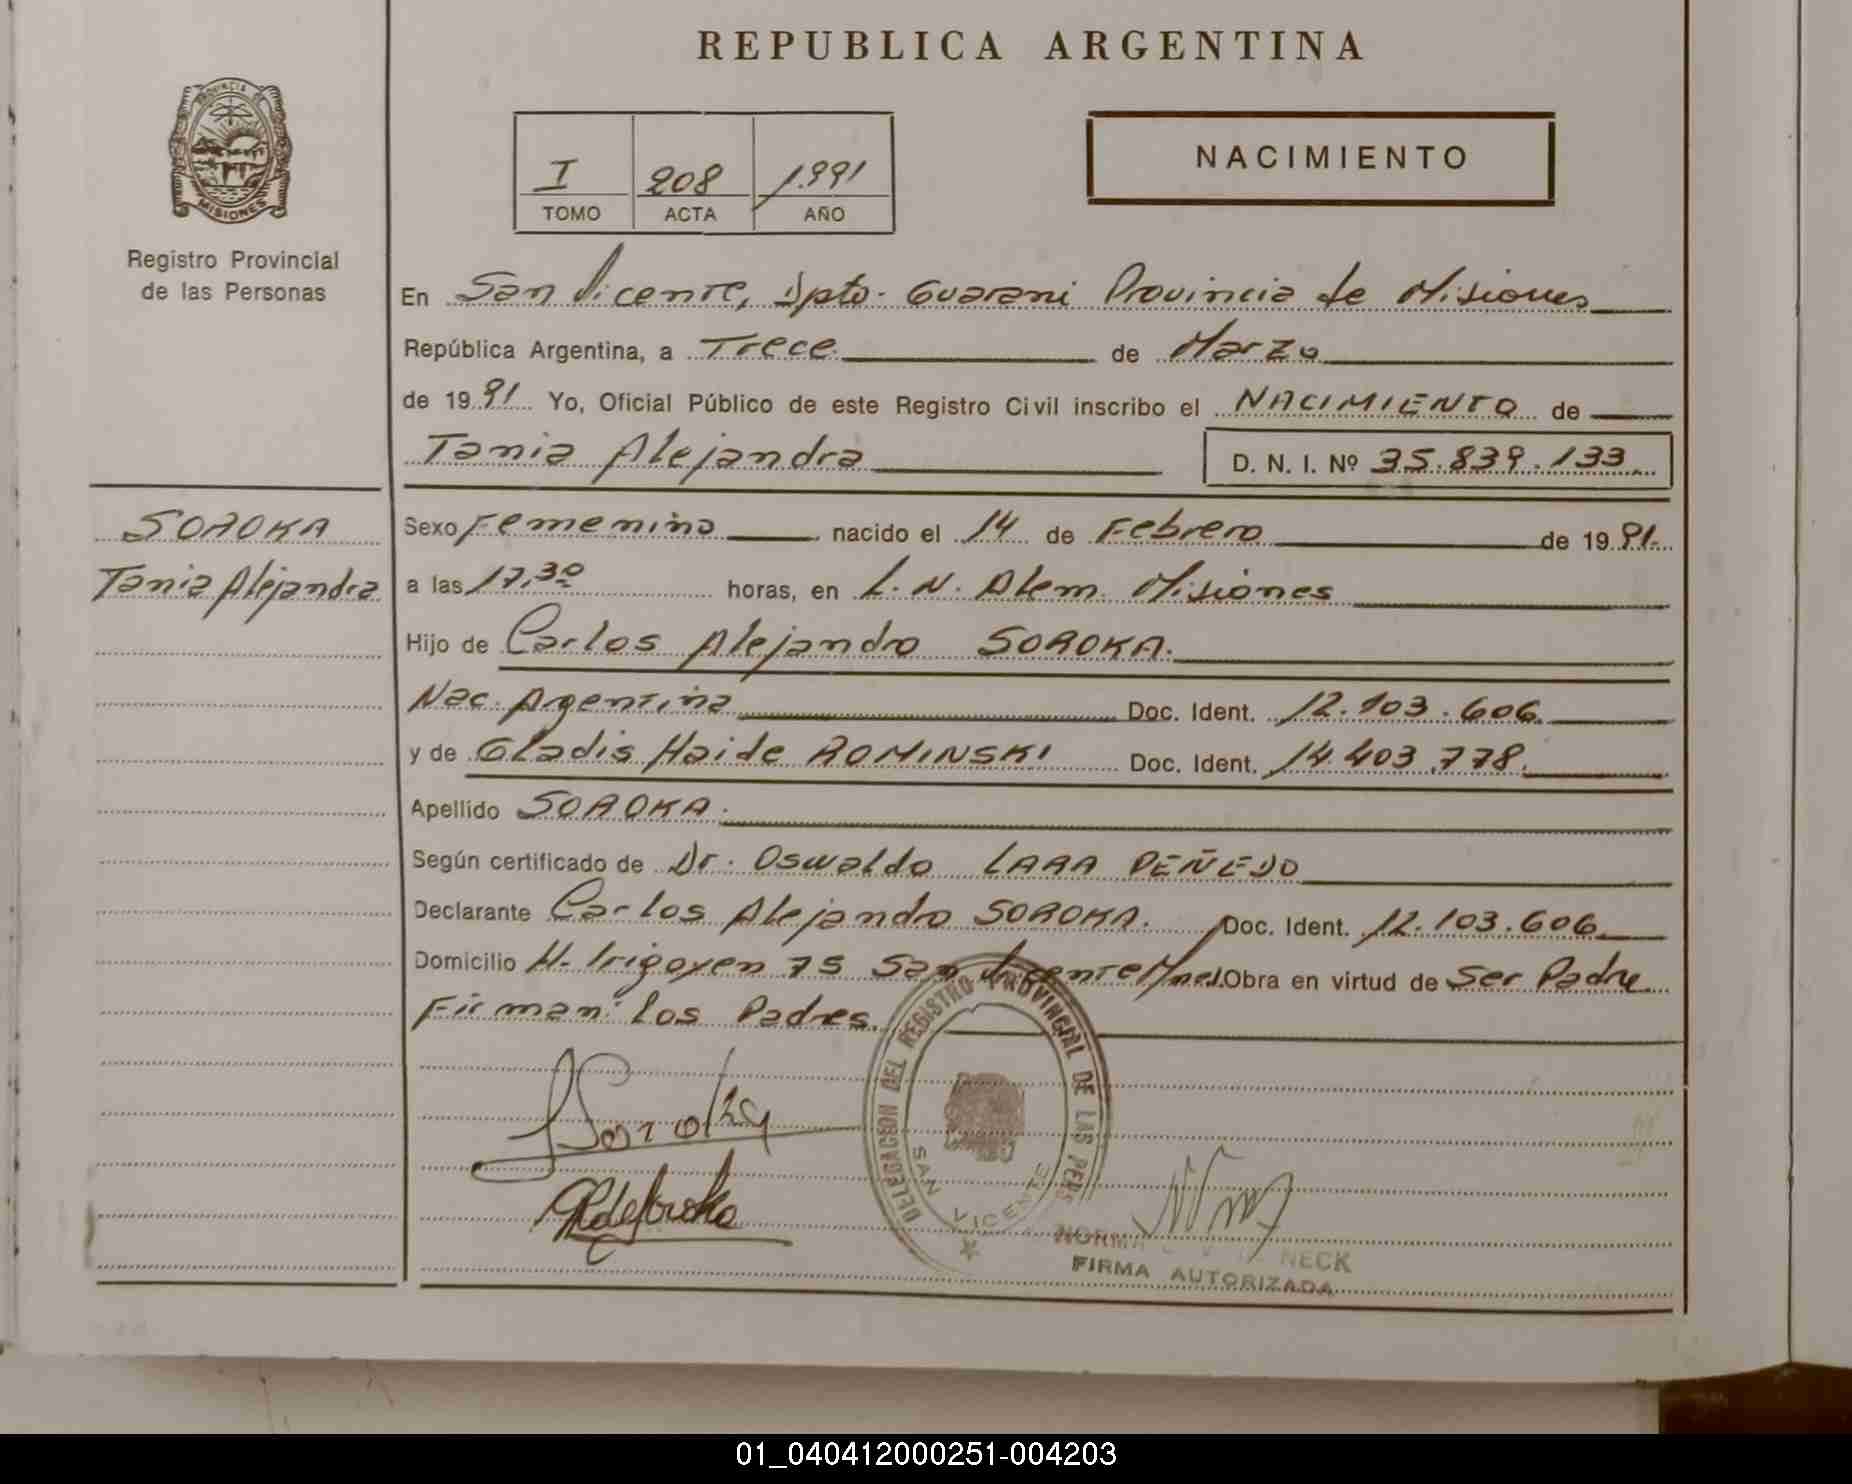 REPUBLICA ARGENTINA
PROVINCIA DE
MISIONES
Registro Provincial
de las Personas
I 208 1.991
TOMO ACTA AÑO
NACIMIENTO
En San Vicente, Dpto. Guarani Provincia de Misiones
República Argentina, a Trece de Marzo
de 1991 Yo, Oficial Público de este Registro Civil inscribo el NACIMIENTO de
Tania Alejandra D. N. I. Nº 35.839.133
SOROKA
Tania Alejandra
Sexo Femenino nacido el 14 de Febrero de 1991.
a las 17,30 horas, en L. N. Alem. Misiones
Hijo de Carlos Alejandro SOROKA.
Nac. Argentina Doc. Ident. 12.103.606
y de Gladis Haide ROMINSKI Doc. Ident. 14.403.778.
Apellido SOROKA.
Según certificado de Dr. Oswaldo LARA PEÑEDO
Declarante Carlos Alejandro SOROKA. Doc. Ident. 12.103.606
Domicilio H. Irigoyen 75 San Vicente Mnes. Obra en virtud de Ser Padre
Firman: los Padres.
Soroka
DELEGACION DEL REGISTRO PROVINCIAL DE LAS PERS
SAN VICENTE
NORMA NECK
FIRMA AUTORIZADA
01_040412000251-004203